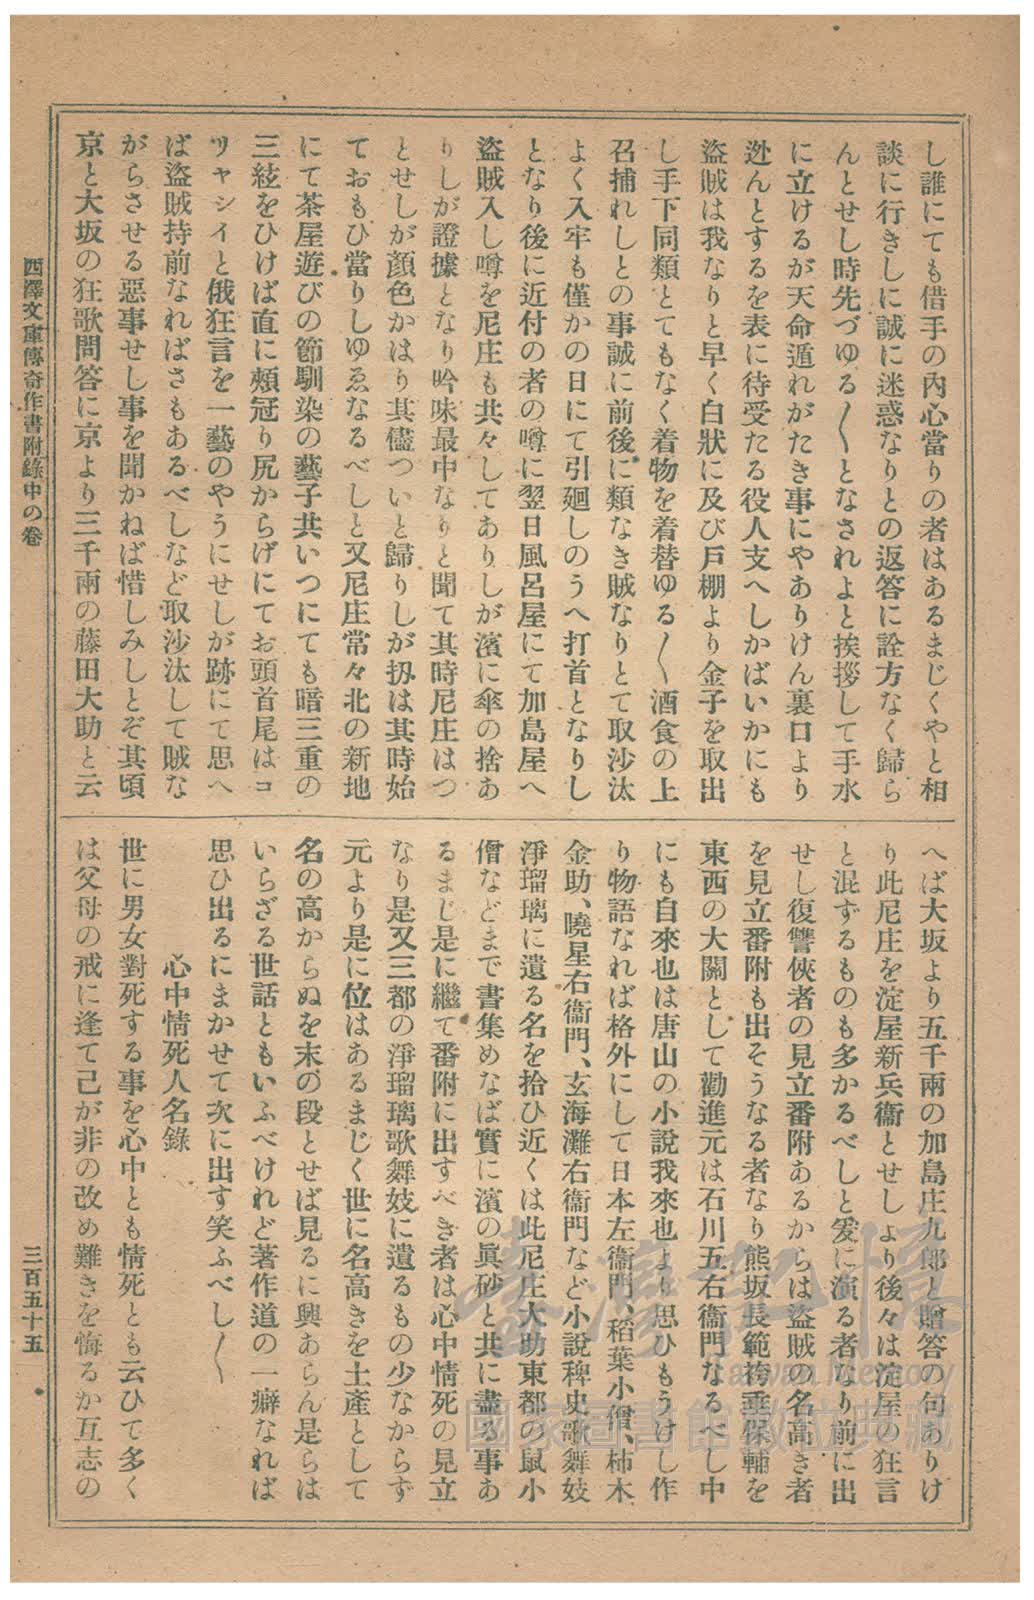 し誰にても借手の內心當りの者はあるまじくやと相
談に行きしに誠に迷惑なりとの返答に詮方なく歸ら
んとせし時先づゆる〱となされよと挨拶して手水
に立けるが天命遁れがたき事にやありけん裏口より
迯んとするを表に待受たる役人支へしかばいかにも
盜賊は我なりと早く白狀に及び戶棚より金子を取出
し手下同類とてもなく着物を着替ゆる〱酒食の上
召捕れしとの事誠に前後に類なき賊なりとて取沙汰
よく入牢も僅かの日にて引廻しのうへ打首となりし
となり後に近付の者の噂に翌日風呂屋にて加島屋へ
盜賊入し噂を尼庄も共々してありしが濱に傘の捨あ
りしが證據となり吟味最中なりと聞て其時尼庄はつ
とせしが顏色かはり其儘ついと歸りしが扨は其時始
ておもひ當りしゆゑなるべしと又尼庄常々北の新地
にて茶屋遊びの節馴染の藝子共いつにても暗三重の
三絃をひけば直に頰冠り尻からげにてお頭首尾はコ
リャシイと俄狂言を一藝のやうにせしが跡にて思へ
ば盜賊持前なればさもあるべしなど取沙汰して賊な
がらさせる惡事せし事を聞かねば惜しみしとぞ其頃
京と大坂の狂歌問答に京より三千兩の藤田大助と云
へば大坂より五千兩の加島庄九郎と贈答の句ありけ
り此尼庄を淀屋新兵衞とせしより後々は淀屋の狂言
と混ずるものも多かるべしと爰に演る者なり前に出
せし復讐俠者の見立番附あるからは盜賊の名高き者
を見立番附も出そうなる者なり熊坂長範袴垂保輔を
東西の大關として勸進元は石川五右衞門なるべし中
にも自來也は唐山の小說我來也より思ひもうけし作
り物語なれば格外にして日本左衞門、稻葉小僧、柿木
金助、曉星右衞門、玄海灘右衞門など小說稗史歌舞妓
淨瑠璃に遺る名を拾ひ近くは此尼庄大助東都の鼠小
僧などまで書集めなば實に濱の眞砂と共に盡る事あ
るまじ是に繼て番附に出すべき者は心中情死の見立
なり是又三都の淨瑠璃歌舞妓に遺るもの少なからず
元より是に位はあるまじく世に名高きを土產として
名の高からぬを末の段とせば見るに興あらん是らは
いらざる世話ともいふべけれど著作道の一癖なれば
思ひ出るにまかせて次に出す笑ふべし〱
心中情死人名錄
世に男女對死する事を心中とも情死とも云ひて多く
は父母の戒に逢て己が非の改め難きを悔るか互志の
西澤文庫傳奇作書附錄中の卷
三百五十五
臺灣記憶
Taiwan Memory
國家圖書館數位典藏